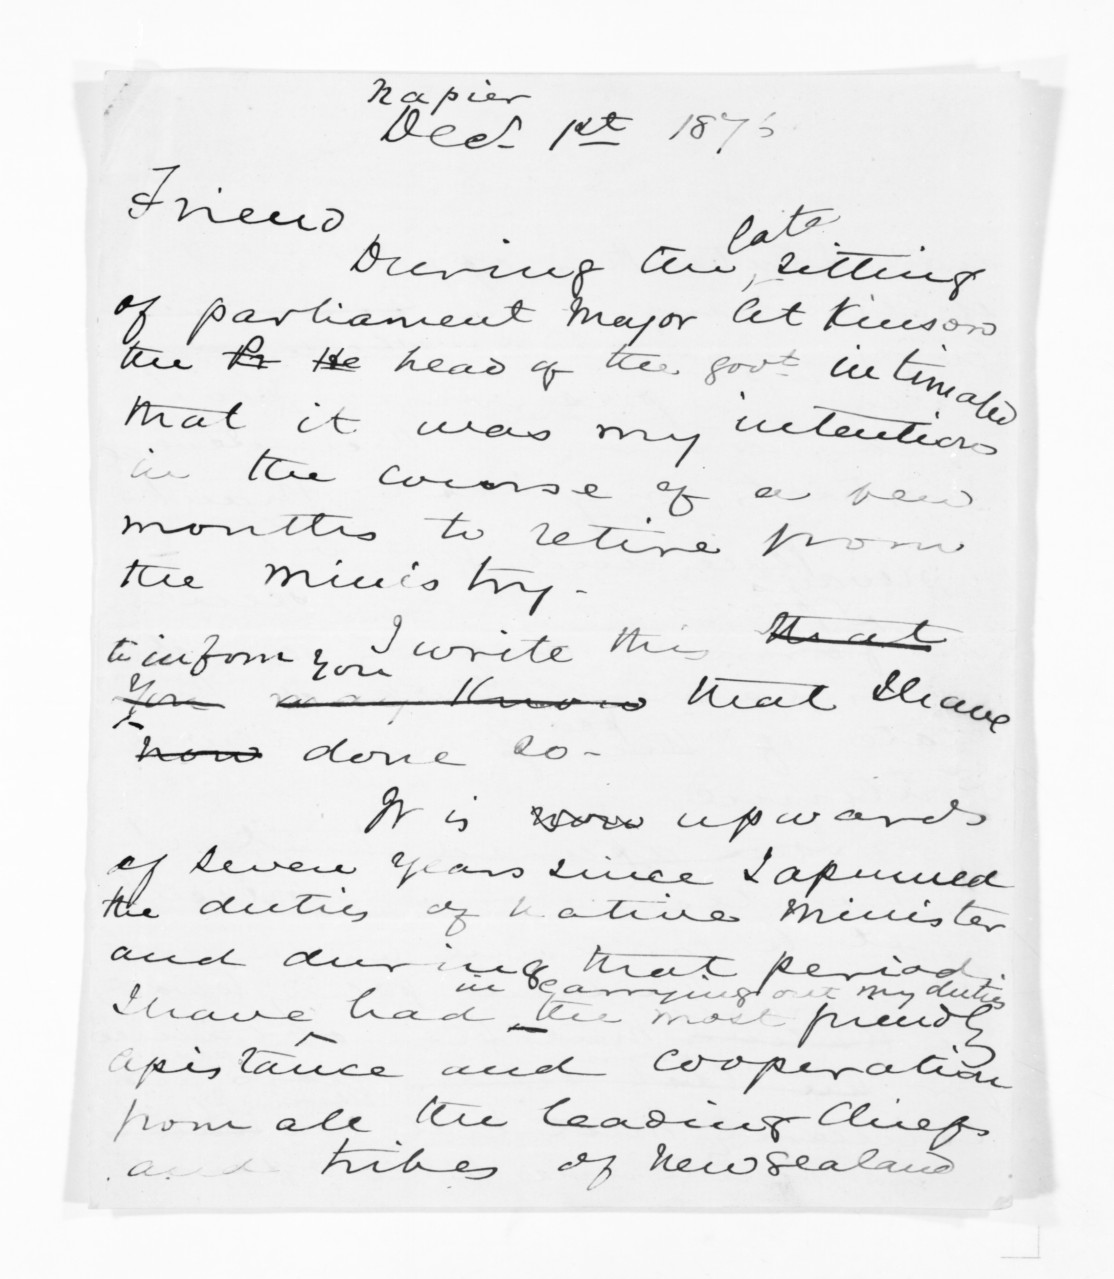 Napier
Decr 1st 1876
Friend
During the late sitting
of parliament Major Atkinson
the Pr He head of the govt intimated
that it was my intention
in the course of a few
months to retire from
the ministry.
I write this that
to inform you
You may know that I have
now done so-
It is now upwards
of seven years since I assumed
the duties of Native Minister
and during that period
in carrying out my duties
I have had the most friendly
assistance and cooperation
from all the leading Chiefs
and tribes of New Zealand